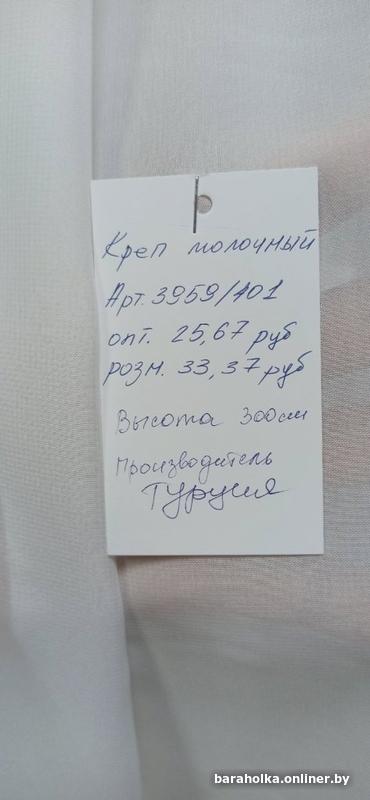 Креп молочный
Арт. 3959/101
опт. 25,67 руб
розн. 33,37 руб
Высота 300см
Производитель
Турция
baraholka.onliner.by